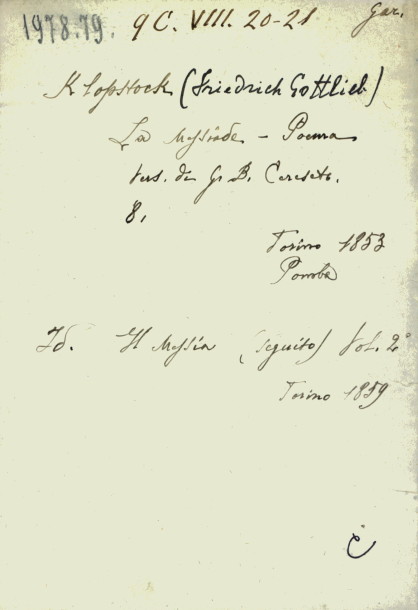 1978.79. 9 C. VIII. 20-21 Gar.
Klopstock (Friedrich Gottlieb)
La Messiade - Poema
Vers. di G. B. Cereseto.
8.
Torino 1853
Pomba
Id. Il Messia (seguito) Vol. 2°
Torino 1859
C